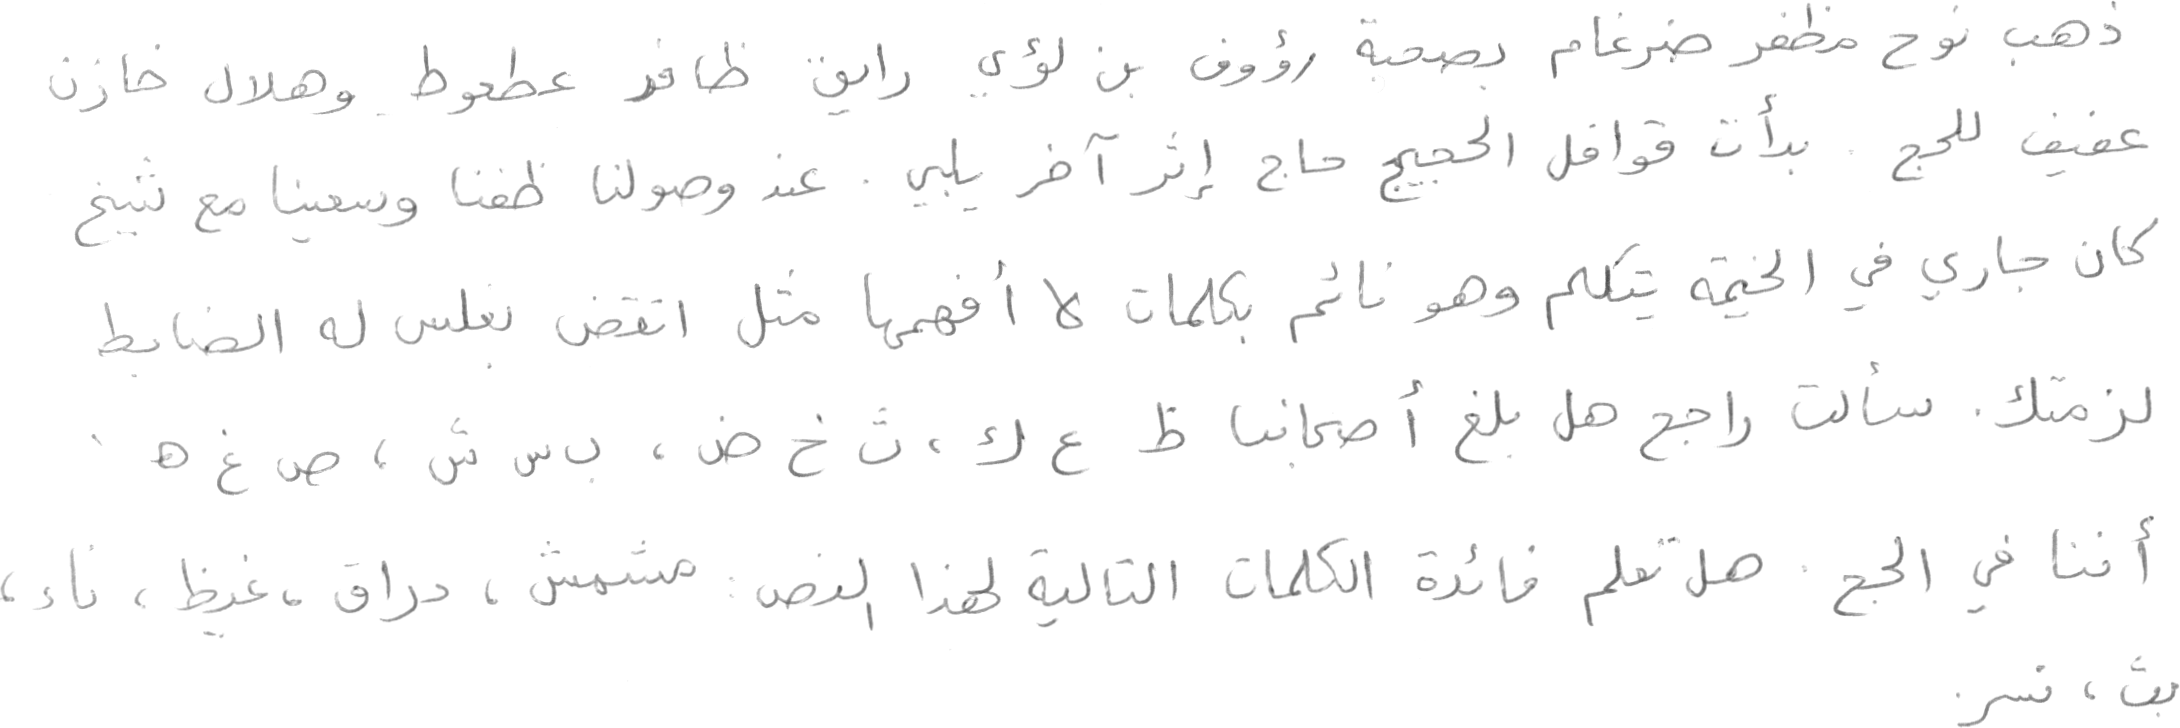 ذهب نوح مظفر ضرغام بصحبة رؤوف بن لؤي رايق ظافر عطعوط وهلال خازن
عفيف للحج . بدأت قوافل الحجيج حاج إثر آخر يلبي . عند وصولنا طفنا وسعينا مع شيخ
كان جاري في الخيمة يتكلم وهو نائم بكلمات لا أفهمها مثل انقض بغلس له الضابط
لزمتك . سألت راجح هل بلغ أصحابنا ظ ع ك ، ث خ ض ، ب س ش ، ص غ ه
أننا في الحج . هل تعلم فائدة الكلمات التالية لهذا النص : مشمش ، دراق ، غيظ ، ناء ،
بث ، نسر .